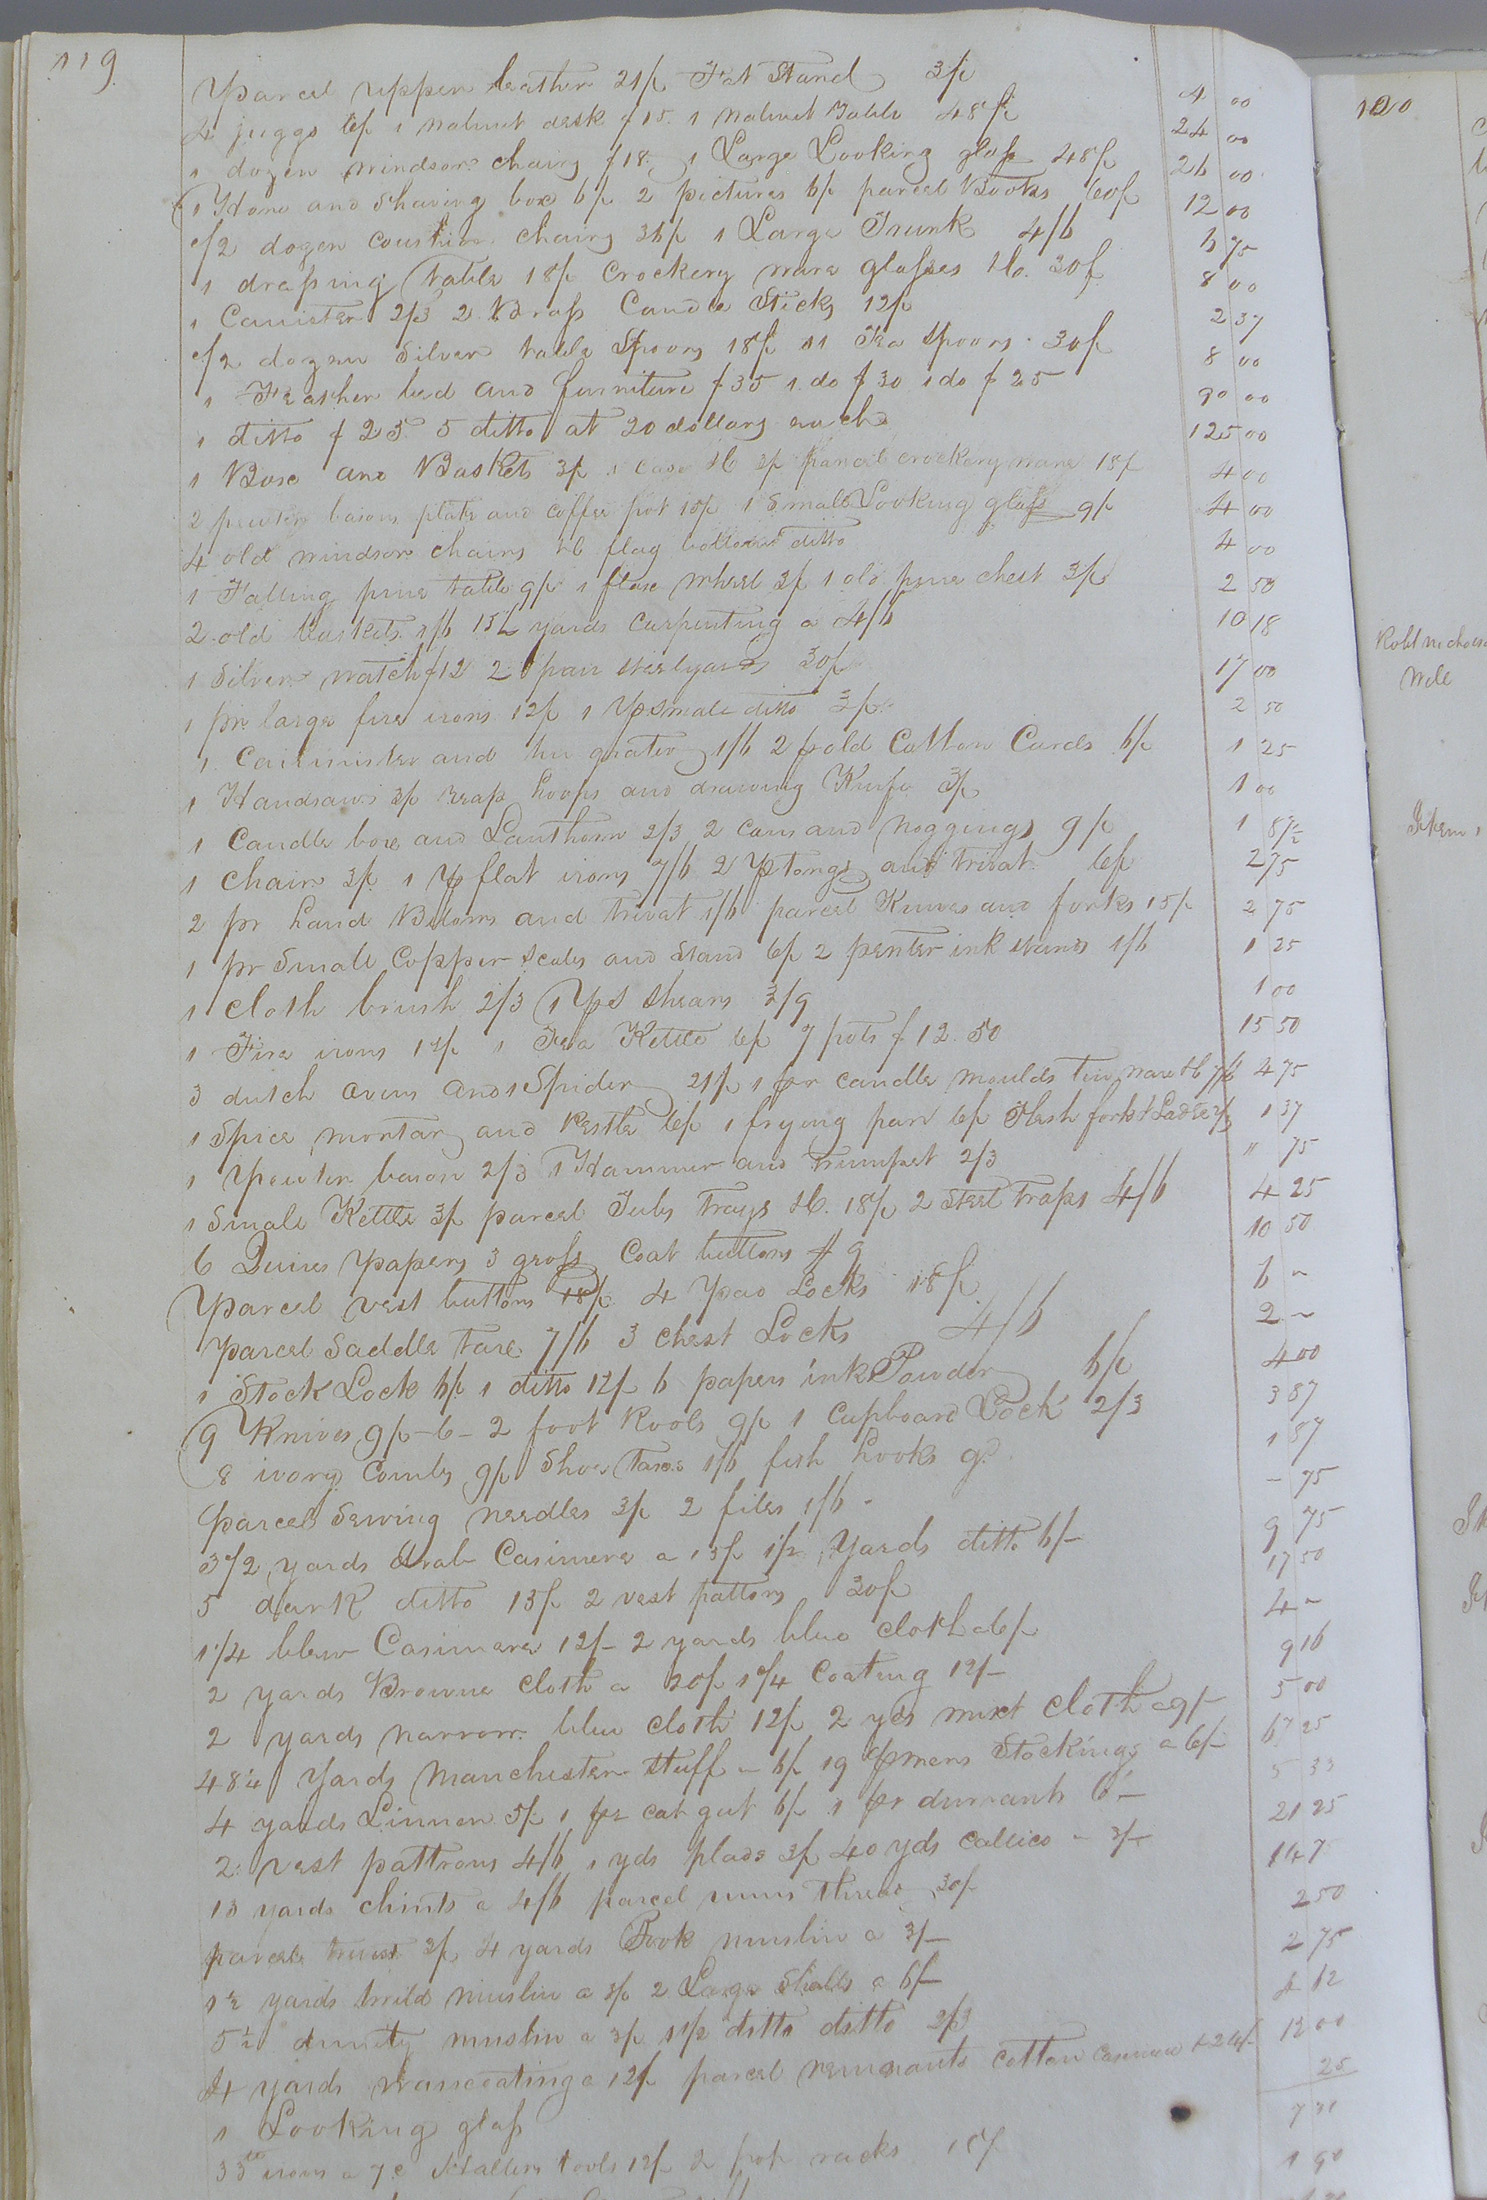 119
Parcel upper leather 21/ Fat Stand 3/ 4 00
4 juggs 6/ 1 walnut desk $15. 1 walnut Table 48/ 24 00
1 dozen windsor chairs $18. 1 Large Looking glass 48/ 26 00
1 Hone and Shaving box 6/ 2 pictures 6/ parcel Books 60/ 12 00
1/2 dozen coushion chairs 36/ 1 Large Trunk 4/6 6 75
1 drassing table 18/ Crockery ware glasses &c. 30/ 8 00
1 Canister 2/3 2 Brass Candle Sticks 12/ 2 37
1/2 dozen Silver table Spoons 18/ 11 Tea Spoons 30/ 8 00
1 Feather bed and furniture $35 1 do $30 1 do $25 90 00
1 ditto $25 5 ditto at 20 dollars each 125 00
1 Box and Baskets 3/ 1 Case &c 3/ parcel crockery ware 18/ 4 00
2 pewter basons plate and coffee pot 15/ 1 Small Looking glass 9/ 4 00
4 old windsor chairs &c flag bottoms ditto 4 00
1 Falling pine table 9/ 1 flax wheel 3/ 1 old pine chest 3/ 2 50
2 old baskets 1/6 13 1/2 yards carpenting a 4/6 10 18
1 Silver watch $12 2 pair steelyards 30/ 17 00
1 pr large fire irons 12/ 1 pr Small ditto 3/ 2 50
1 Cannister and tin grater 1/6 2 p old Cotton Cards 6/ 1 25
1 Handsaws 3/ Scrap hoops and drawing Knife 3/ 1 00
1 Candle box and Lanthorn 2/3 2 cans and noggings 9/ 1 87 1/2
1 chair 3/ 1 pr flat irons 7/6 2 pr tongs and trivat 6/ 2 75
2 pr hand Bellows and trivat 1/6 parcel Knives and forks 15/ 2 75
1 pr Small Copper Scales and Stand 6/ 2 penter ink stands 1/6 1 25
1 cloth brush 2/3 1 pr Shears 3/9 1 00
1 Fire irons 12/ 1 Tea Kettle 6/ 7 pots $12.50 15 50
3 dutch ovens and 1 Spider 21/ 1 pr candle moulds tin ware &c 7/6 4 75
1 Spice mortar and Pestle 6/ 1 frying pan 6/ Flesh fork & Ladle 2/3 1 37
1 Pewter bason 2/3 1 Hammer and trumpet 2/3 " 75
1 Small Kettle 3/ parcel Tubs trays &c. 18/ 2 Steel traps 4/6 4 25
6 Quires papers 3 gross Coat buttons $9 10 50
Parcel vest buttons 18/ 4 Pad Locks 18/ 6 -
Parcel Saddle Tax 7/6 3 chest Locks 4/6 2 -
1 Stock Lock 6/ 1 ditto 12/ 6 papers ink Powder 6/ 4 00
9 Knives 9/- 6 - 2 foot Rools 9/ 1 Cupboard Lock 2/3 3 87
8 ivory Combs 9/ Shoe Taxes 1/6 fish hooks 9d 1 87
parcel Sewing needles 3/ 2 files 1/6 - 75
3 1/2 yards drab Casimere a 15/ 1 1/2 yards ditto 6/- 9 75
5 dark ditto 15/ 2 vest pattons 30/ 17 50
1 1/4 blew Casimere 12/- 2 yards blue cloth a 6/ 4 -
2 yards Browne cloth a 20/ 1 3/4 Coating 12/- 9 16
2 yards narrow blue cloth 12/ 2 yds mixt cloth a 9/- 5 00
48 1/4 yards Manchester Stuff a 6/ 19 pr mens Stockings a 6/- 67 25
4 yards Linnen 5/ 1 ps cat gut 6/ 1 pr durrants 6/- 5 33
2 vest pattrons 4/6 1 yds plads 3/ 40 yds callico a 3/- 21 25
13 yards chints a 4/6 parcel thread 30/ 14 7
parcel twist 3/ 4 yards Book muslin a 3/- 2 50
1 1/2 yards twild muslin a 3/ 2 Large Shalls a 6/- 2 75
5 1/2 dimity muslin a 3/ 1 1/2 ditto ditto 2/3 4 62
4 yards a 12/ parcel remenants cotton casimere & 24/- 12 00
1 Looking glass 25
33 lb irons a 7 c Hatters tools 12/ 2 racks 15/
120
Robt Nicholson
Item 1